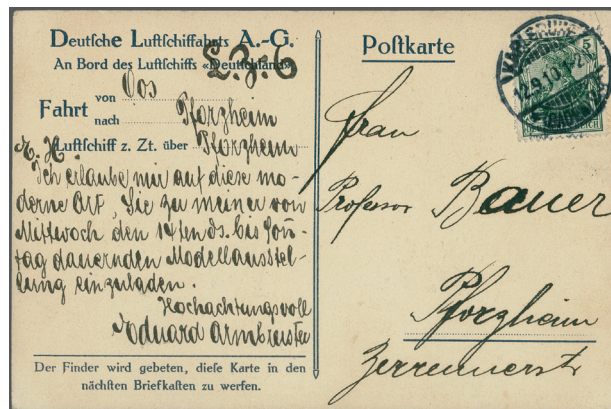 Deutsche Luftschiffahrts A.-G.
An Bord des Luftschiffs «Deutschland»
L.Z.6
Fahrt von Oos
nach Pforzheim
Luftschiff z. Zt. über Pforzheim
Ich erlaube mir auf diese mo-
derne Art, Sie zu meiner von
Mittwoch den 14ten ds. bis Son̄-
tag dauernden Modellausstel-
lung einzuladen.
Hochachtungsvoll
Eduard Armbruster
Der Finder wird gebeten, diese Karte in den
nächsten Briefkasten zu werfen.
Postkarte
Frau
Professor Bauer
Pforzheim
Zerrennerstr
KARLSRUHE
12.9.10.
5